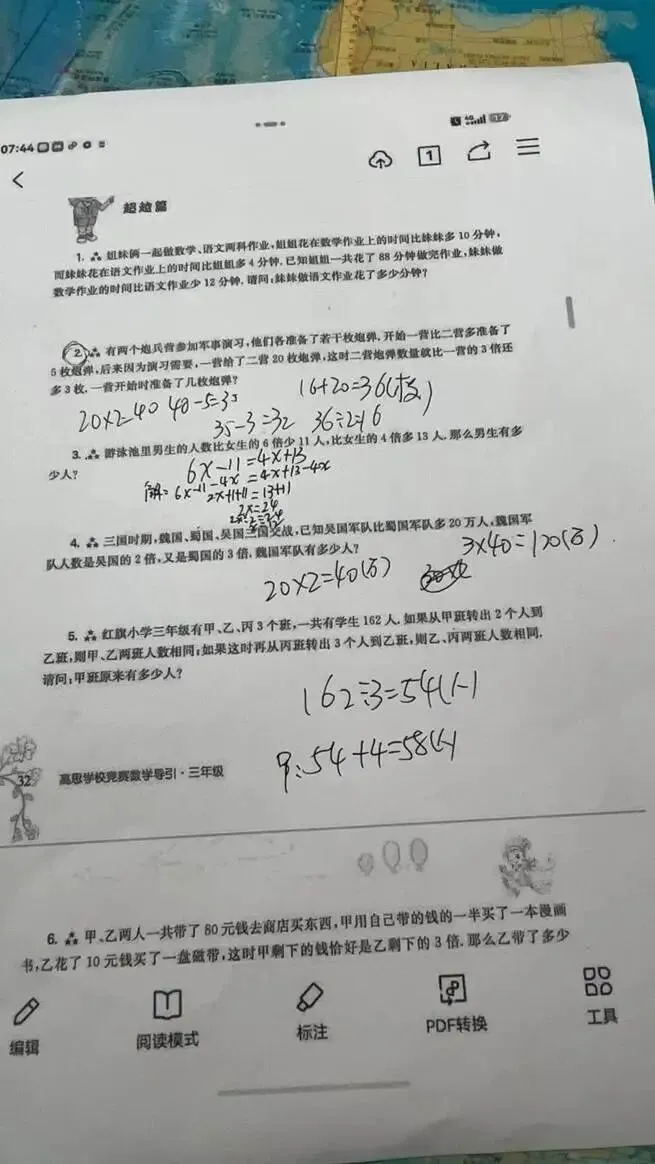 07:44
4G
17
1
超越篇
1. 姐妹俩一起做数学、语文两科作业,姐姐花在数学作业上的时间比妹妹多 10 分钟,
而妹妹花在语文作业上的时间比姐姐多 4 分钟. 已知姐姐一共花了 88 分钟做完作业,妹妹做
数学作业的时间比语文作业少 12 分钟. 请问:妹妹做语文作业花了多少分钟?
2. 有两个炮兵营参加军事演习,他们各准备了若干枚炮弹. 开始一营比二营多准备了
5 枚炮弹,后来因为演习需要,一营给了二营 20 枚炮弹,这时二营炮弹数量就比一营的 3 倍还
多 3 枚. 一营开始时准备了几枚炮弹?
16+20=36(枚)
20×2=40 40-5=35
35-3=32 36÷2=16
3. 游泳池里男生的人数比女生的 6 倍少 11 人,比女生的 4 倍多 13 人. 那么男生有多
少人?
6x-11=4x+13
解: 6x-11-4x=4x+13-4x
2x-11+11=13+11
2x=24
4. 三国时期,魏国、蜀国、吴国三国交战,已知吴国军队比蜀国军队多 20 万人,魏国军
队人数是吴国的 2 倍,又是蜀国的 3 倍. 魏国军队有多少人?
3×40=120(万).
20×2=40(万)
5. 红旗小学三年级有甲、乙、丙 3 个班,一共有学生 162 人. 如果从甲班转出 2 个人到
乙班,则甲、乙两班人数相同;如果这时再从丙班转出 3 个人到乙班,则乙、丙两班人数相同.
请问:甲班原来有多少人?
162÷3=54(人)
甲:54+4=58(人)
32
高思学校竞赛数学导引·三年级
6. 甲、乙两人一共带了 80 元钱去商店买东西,甲用自己带的钱的一半买了一本漫画
书,乙花了 10 元钱买了一盘磁带,这时甲剩下的钱恰好是乙剩下的 3 倍. 那么乙带了多少
编辑
阅读模式
标注
PDF转换
工具